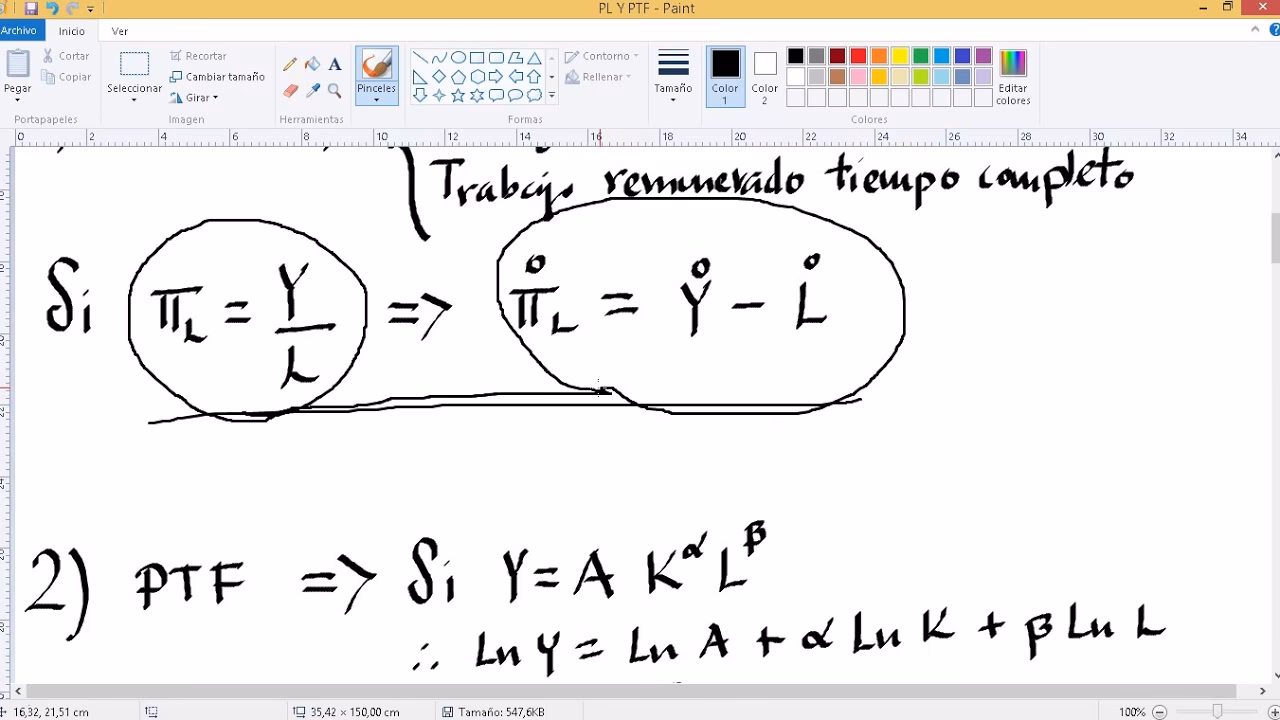 PL Y PTF - Paint
Archivo Inicio Ver
Pegar
Cortar
Copiar
Seleccionar
Recortar
Cambiar tamaño
Girar
A
Pinceles
Contorno
Rellenar
Tamaño
Color 1
Color 2
Editar colores
Portapapeles Imagen Herramientas Formas Colores
0 2 4 6 8 10 12 14 16 18 20 22 24 26 28 30 32 34
Trabajo remunerado tiempo completo
Si π_L = Y/L => π̊_L = Y̊ − L̊
2) PTF => Si Y = A K^α L^β
∴ Ln Y = Ln A + α Ln K + β Ln L
16,32, 21,51 cm 35,42 × 150,00 cm Tamaño: 547,6KB 100%